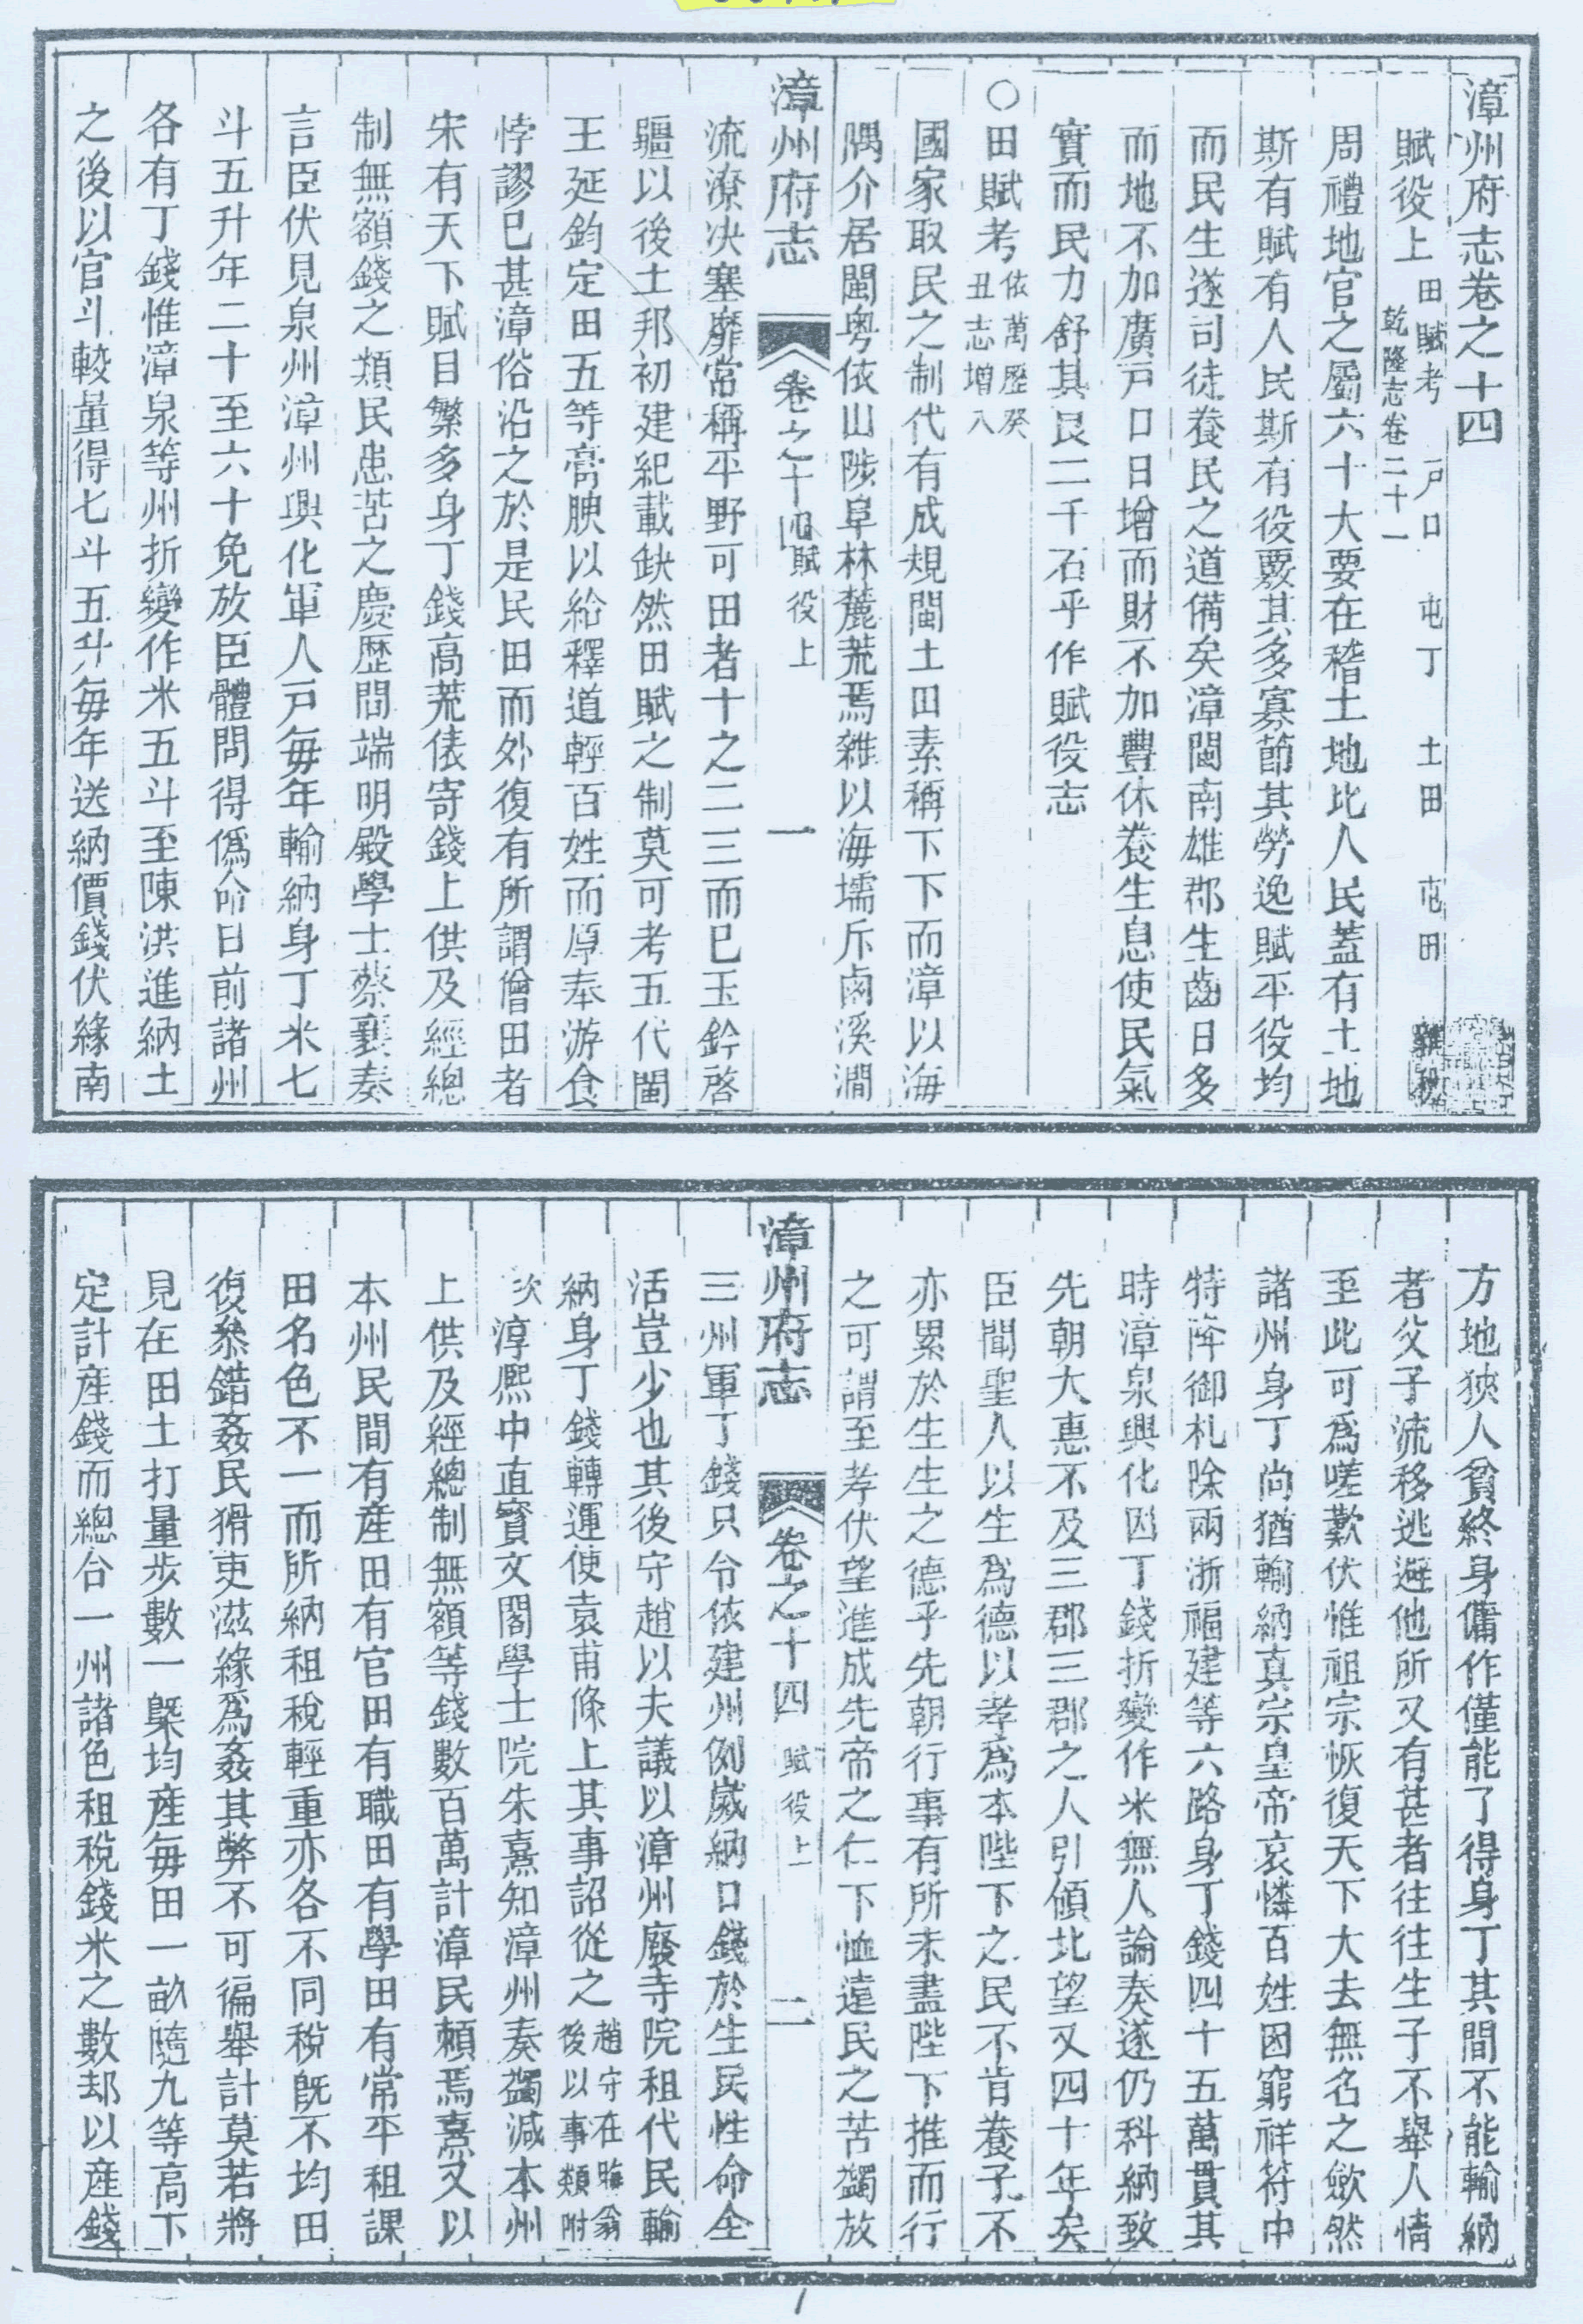 漳州府志卷之十四
賦役上 田賦考 戶口 屯丁 土田 屯田
乾隆志卷二十一
周禮地官之屬六十大要在稽土地比人民蓋有土地
斯有賦有人民斯有役覈其多寡節其勞逸賦平役均
而民生遂司徒養民之道備矣漳閩南雄郡生齒日多
而地不加廣戸口日增而財不加豐休養生息使民氣
實而民力舒其良二千石乎作賦役志
○田賦考 依萬歷癸丑志增入
國家取民之制代有成規閩土田素稱下下而漳以海
隅介居閩粤依山陟阜林麓荒焉雜以海壖斥鹵溪澗
漳州府志 卷之十四 賦役上 一
流潦決塞靡常稱平野可田者十之二三而已玉鈐啓
疆以後土邦初建紀載缺然田賦之制莫可考五代閩
王延鈞定田五等膏腴以給釋道輕百姓而厚奉游食
悖謬已甚漳俗沿之於是民田而外復有所謂僧田者
宋有天下賦目繁多身丁錢高荒俵寄錢上供及經總
制無額錢之類民患苦之慶歷間端明殿學士蔡襄奏
言臣伏見泉州漳州興化軍人戸每年輸納身丁米七
斗五升年二十至六十免放臣體問得僞命日前諸州
各有丁錢惟漳泉等州折變作米五斗至陳洪進納土
之後以官斗較量得七斗五升每年送納價錢伏緣南
方地狹人貧終身傭作僅能了得身丁其間不能輸納
者父子流移逃避他所又有甚者往往生子不舉人情
至此可爲嗟歎伏惟祖宗恢復天下大去無名之斂然
諸州身丁尚猶輸納真宗皇帝哀憐百姓困窮祥符中
特降御札除兩浙福建等六路身丁錢四十五萬貫其
時漳泉興化因丁錢折變作米無人論奏遂仍科納致
先朝大惠不及三郡三郡之人引領北望又四十年矣
臣聞聖人以生爲德以孝爲本陛下之民不肯養子不
亦累於生生之德乎先朝行事有所未盡陛下推而行
之可謂至孝伏望進成先帝之仁下恤遠民之苦蠲放
漳州府志 卷之十四 賦役上 二
三州軍丁錢只令依建州例歲納口錢於生民性命全
活豈少也其後守趙以夫議以漳州廢寺院租代民輸
納身丁錢轉運使袁甫條上其事詔從之 趙守在晦翁後以事類附
次淳熙中直寶文閣學士院朱熹知漳州奏蠲減本州
上供及經總制無額等錢數百萬計漳民賴焉熹又以
本州民間有産田有官田有職田有學田有常平租課
田名色不一而所納租稅輕重亦各不同稅旣不均田
復叅錯姦民猾吏滋緣爲姦其弊不可徧舉計莫若將
見在田土打量步數一槩均産每田一畝隨九等高下
定計産錢而總合一州諸色租稅錢米之數却以産錢